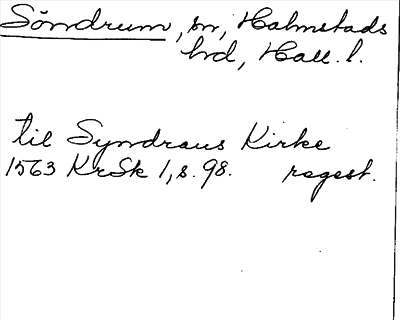 Söndrum, sn, Halmstads
hd, Hall. l.
til Syndraus Kirke
1563 KrSk 1, s. 98. regest.